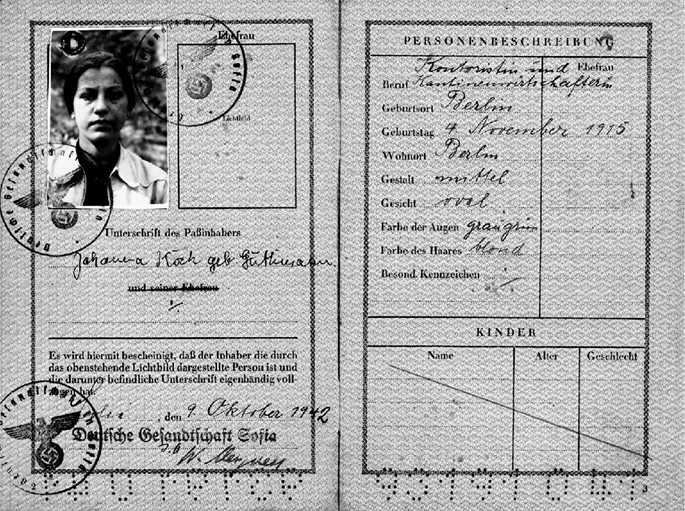 Ehefrau
Lichtbild
Deutsche Gesandtschaft Sofia
Unterschrift des Paßinhabers
Johanna Koch geb. Güttmann.
und seiner Ehefrau
Es wird hiermit bescheinigt, daß der Inhaber die durch
das obenstehende Lichtbild dargestellte Person ist und
die darunter befindliche Unterschrift eigenhändig voll-
zogen hat.
Sofia, den 9. Oktober 1942
Deutsche Gesandtschaft Sofia
PERSONENBESCHREIBUNG
Kontoristin und Ehefrau
Beruf Kantinenwirtschafterin
Geburtsort Berlin
Geburtstag 4. November 1915
Wohnort Berlin
Gestalt mittel
Gesicht oval
Farbe der Augen graugrün
Farbe des Haares blond
Besond. Kennzeichen
KINDER
Name Alter Geschlecht
3